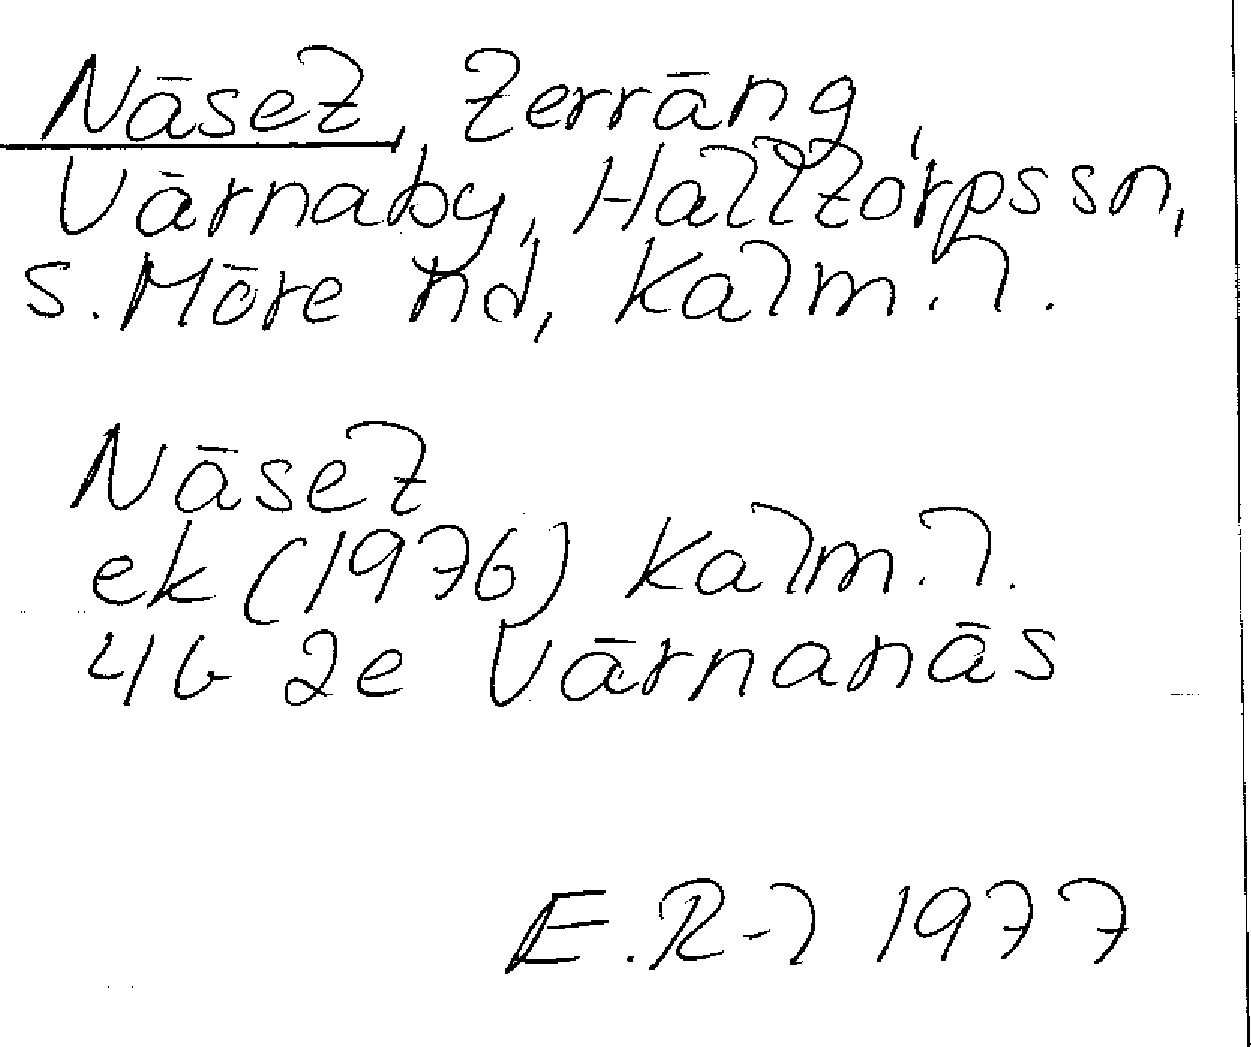 Näset, terräng,
Värnaby, Halltorps sn,
S. Möre hd, Kalm. l.
Näset
ek (1976) Kalm. l.
4G 2e Värnanäs
E.R-l 1977